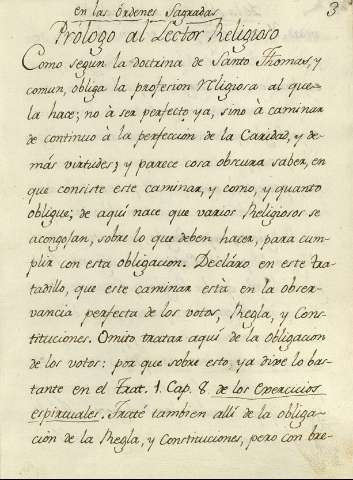 en las Ordenes Sagradas
3
Prólogo al Lector Religioso
Como segun la doctrina de Santo Thomas, y
comun, obliga la profesion Religiosa al que
la hace; no à ser perfecto ya, sino à caminar
de continuo à la perfección de la Caridad, y de-
más virtudes; y parece cosa obscura saber, en
que consiste este caminar, y como, y quanto
obligue; de aquí nace que varios Religiosos se
acongojan, sobre lo que deben hacer, para cum-
plir con esta obligacion. Decláro en este tra-
tadillo, que este caminar está en la obser-
vancia perfecta de los votos, Regla, y Cons-
tituciones. Omito tratar aquí de la obligacion
de los votos: por que sobre esto ya dixe lo bas-
tante en el Trat. 1. Cap. 8. de los Exercicios
espirituales. Traté tambien allí de la obliga-
cion de la Regla, y Constituciones, pero con bre-